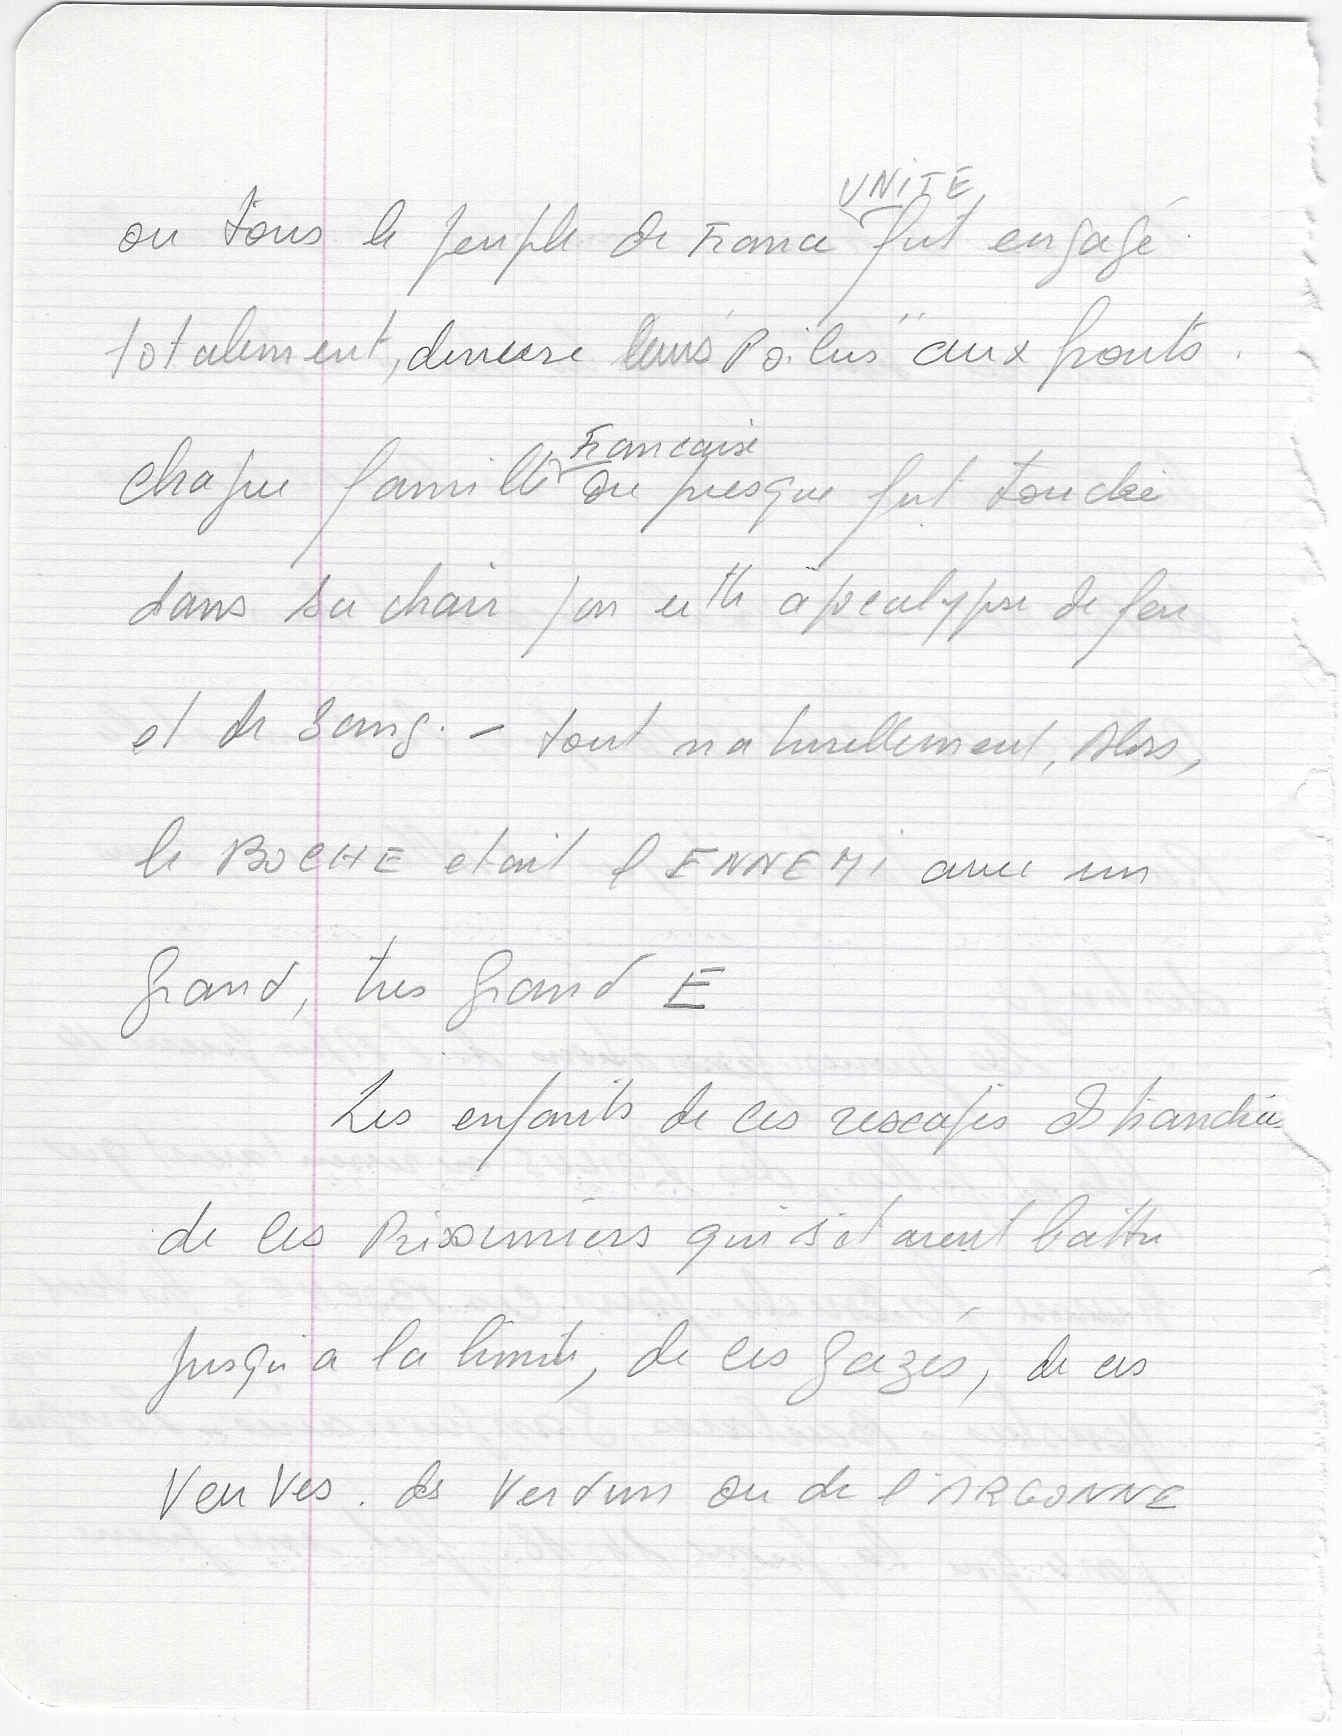 UNITE
ou tous le peuple de France fut engagé
totalement, derriere leurs "Poilus" aux fronts.
Francaise
chaque famille ou presque fut touchée
dans sa chair par cette apocalypse de feu
et de Sang. - tout naturellement, Alors,
le BOCHE etait l'ENNEMi avec un
grand, tres grand E
Les enfants de ces rescapés des tranchées
de ces Prisonniers qui s'étaient battu
jusqu'a la limite, de ces gazés, de ces
Veuves. de Verdun ou de l'ARGONNE